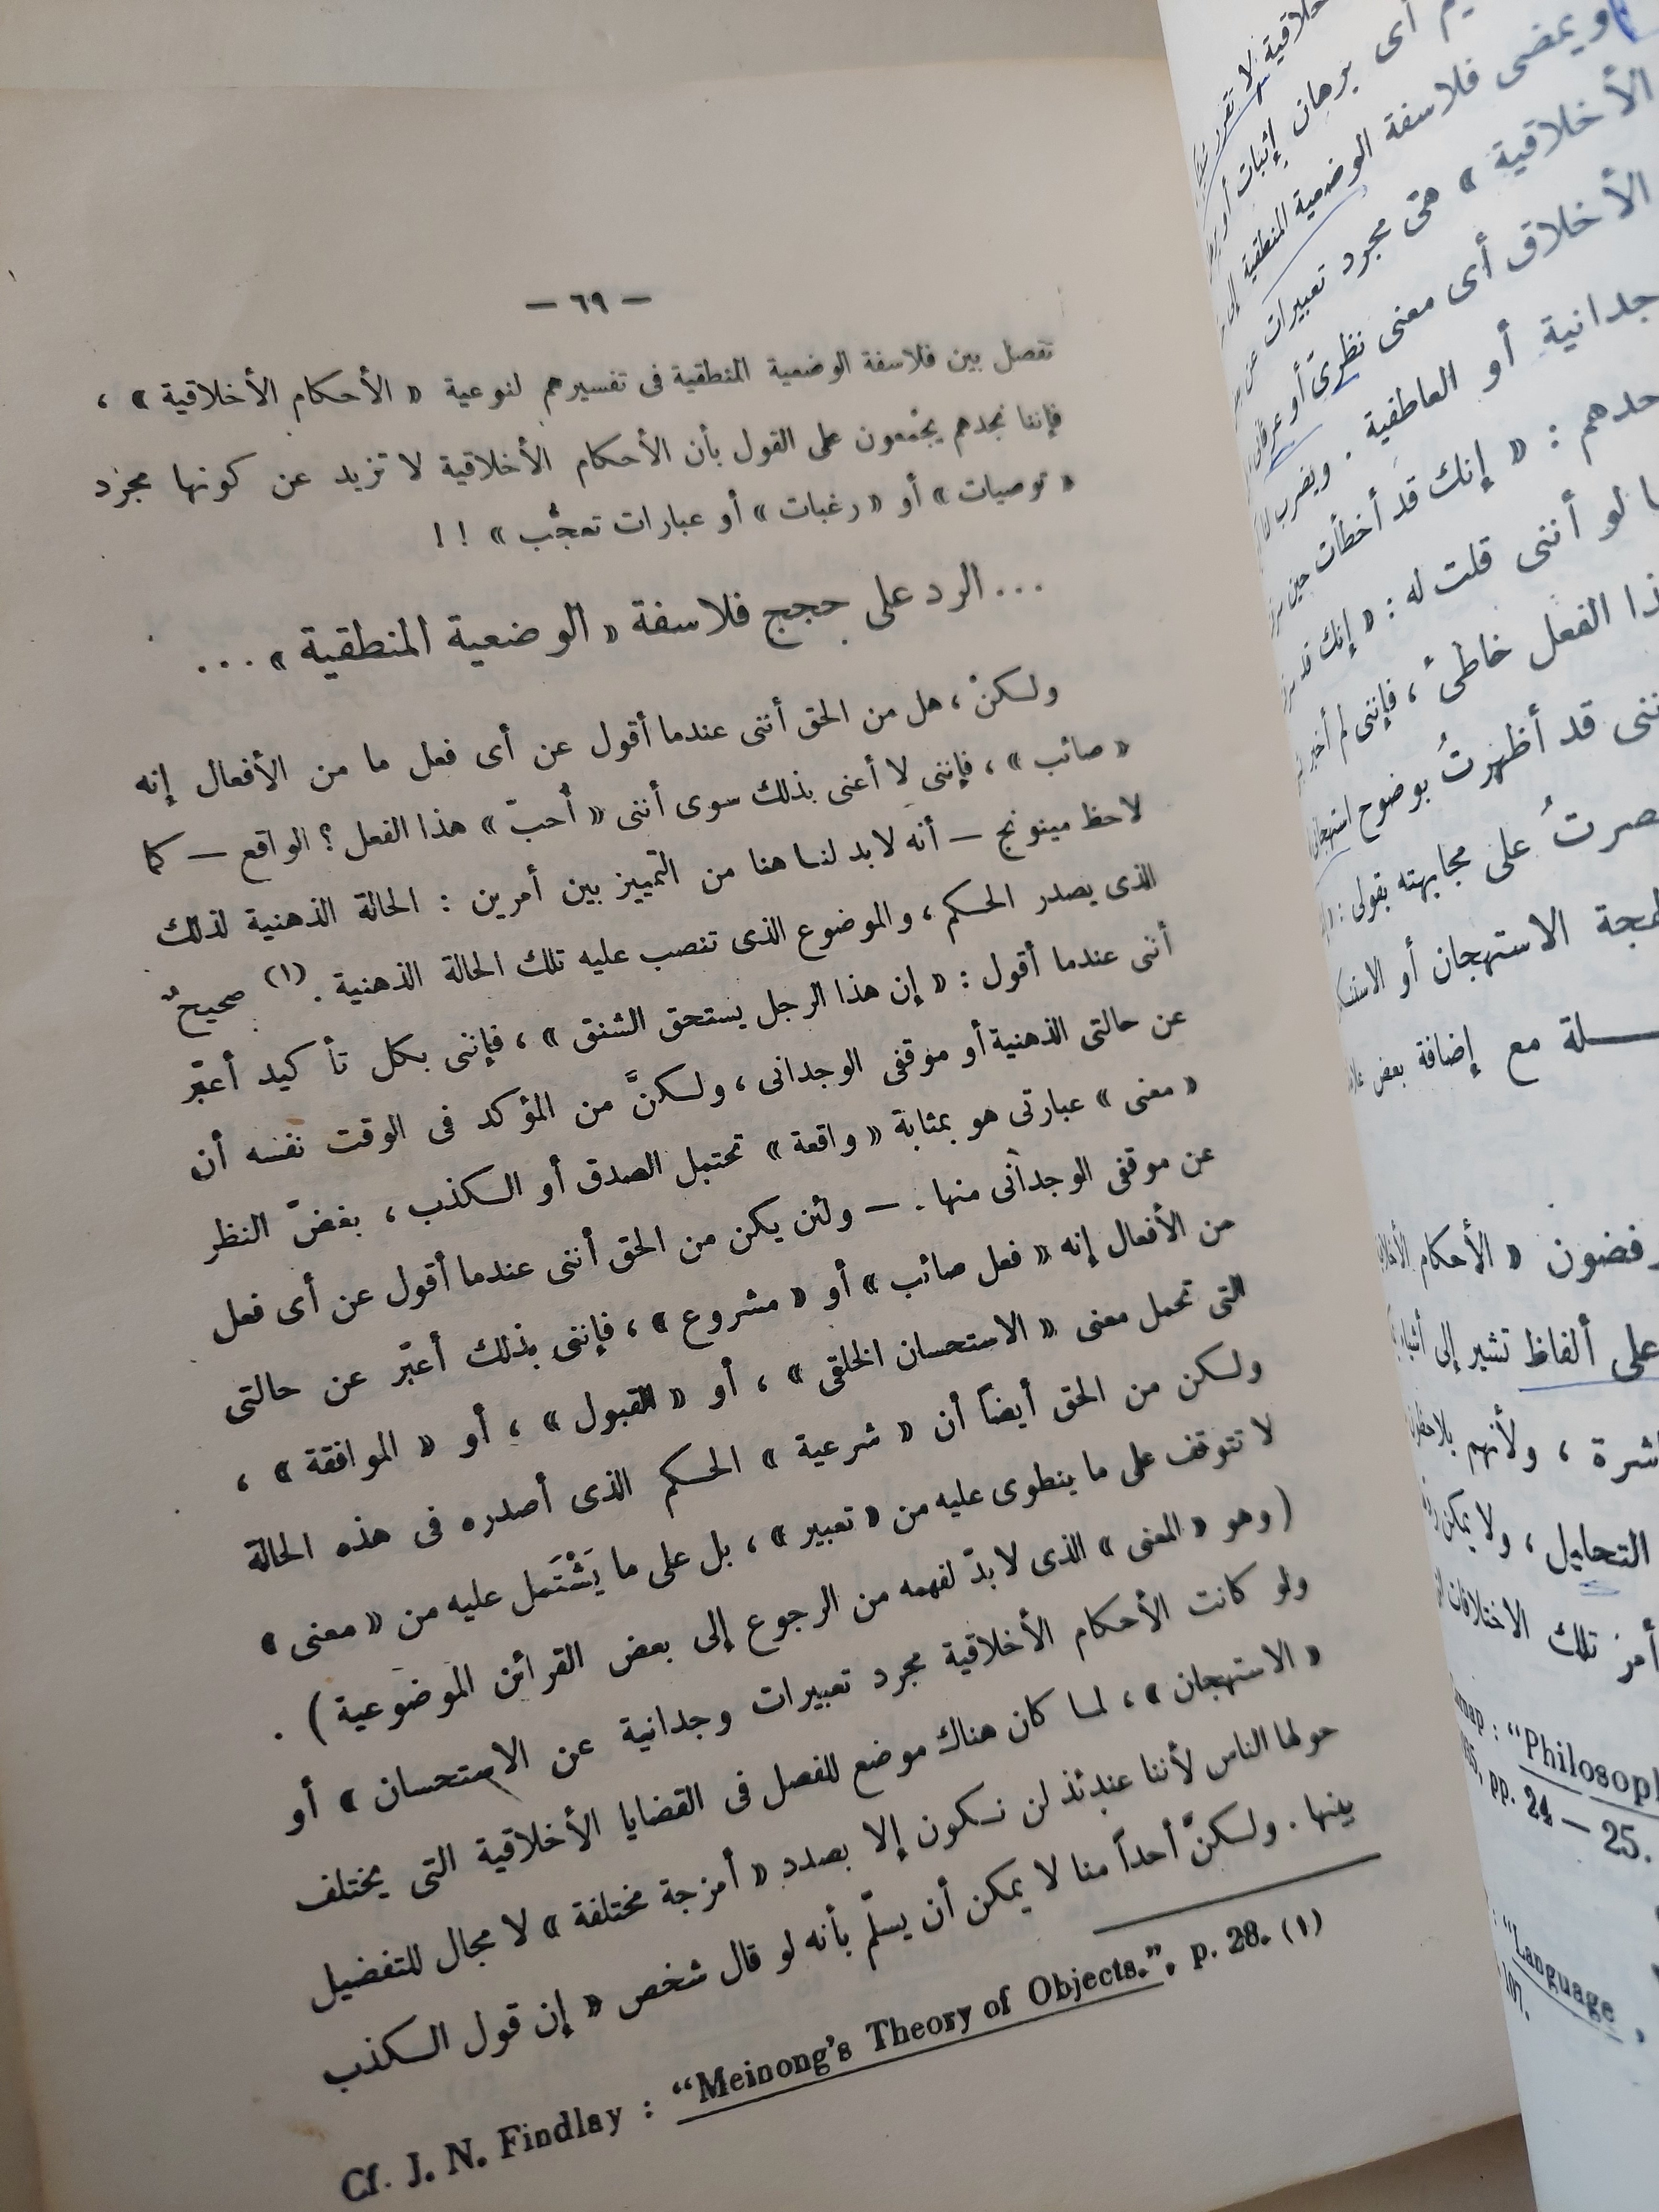 — ٦٩ —
تفصل بين فلاسفة الوضعية المنطقية فى تفسيرهم لنوعية « الأحكام الأخلاقية » ،
فإننا نجدهم يجْمعون على القول بأن الأحكام الأخلاقية لا تزيد عن كونها مجرد
« توصيات » أو « رغبات » أو عبارات تعجُّب » ! !
... الرد على حجج فلاسفة « الوضعية المنطقية » ...
ولكنْ ، هل من الحق أننى عندما أقول عن أى فعل ما من الأفعال إنه
« صائب » ، فإننى لا أعنى بذلك سوى أننى « أحبّ » هذا الفعل ؟ الواقع — كما
لاحظ مينونج — أنه لا بد لنا هنا من التمييز بين أمرين : الحالة الذهنية لذلك
الذى يصدر الحكم ، والموضوع الذى تنصب عليه تلك الحالة الذهنية . (١) صحيحٌ
أننى عندما أقول : « إن هذا الرجل يستحق الشنق » ، فإننى بكل تأكيد أعبّر
عن حالتى الذهنية أو موقفى الوجدانى ، ولكنَّ من المؤكد فى الوقت نفسه أن
« معنى » عبارتى هو بمثابة « واقعة » تحتمل الصدق أو الكذب ، بغضّ النظر
عن موقفى الوجدانى منها . — ولئن يكن من الحق أننى عندما أقول عن أى فعل
من الأفعال إنه « فعل صائب » أو « مشروع » ، فإننى بذلك أعبّر عن حالتى
التى تحمل معنى « الاستحسان الخلقى » ، أو « القبول » ، أو « الموافقة » ،
ولكن من الحق أيضاً أن « شرعية » الحكم الذى أصدره فى هذه الحالة
لا تتوقف على ما ينطوى عليه من « تعبير » ، بل على ما يَشْتَمل عليه من « معنى »
( وهو « المعنى » الذى لا بدّ لفهمه من الرجوع إلى بعض القرائن الموضوعية ) .
ولو كانت الأحكام الأخلاقية مجرد تعبيرات وجدانية عن الاستحسان » أو
« الاستهجان » ، لما كان هناك موضع للفصل فى القضايا الأخلاقية التى يختلف
حولها الناس لأننا عندئذ لن نكون إلا بصدد « أمزجة مختلفة » لا مجال للتفضيل
بينها . ولكنّ أحداً منا لا يمكن أن يسلّم بأنه لو قال شخص « إن قول الكذب
Cf. J. N. Findlay : "Meinong's Theory of Objects.", p. 28. (١)
أى برهان إثبات أو
ويمضى فلاسفة الوضعية المنطقية
الأخلاقية » هى مجرد تعبيرات عن
الأخلاق أى معنى نظرىّ أو
أو العاطفية . ويضرب
: « إنك قد أخطأت حين
لو أننى قلت له : « إنك قد
الفعل خاطئ ، فإننى لم
قد أظهرتُ بوضوح
على مجابهته بقولى :
الاستهجان أو
مع إضافة بعض
« الأحكام
على ألفاظ تشير إلى
، ولأنهم
التحليل ، ولا يمكن
أمر تلك الاختلافات
: "Philosoph
pp. 24 — 25.
: "Language,
107.